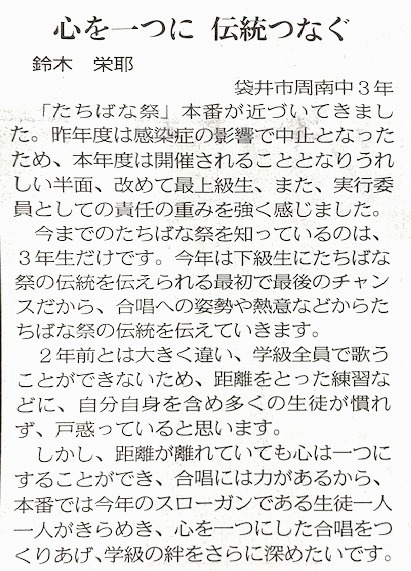 心を一つに 伝統つなぐ
鈴木 栄耶
袋井市周南中３年
「たちばな祭」本番が近づいてきまし
た。昨年度は感染症の影響で中止となった
ため、本年度は開催されることとなりうれ
しい半面、改めて最上級生、また、実行委
員としての責任の重みを強く感じました。
今までのたちばな祭を知っているのは、
３年生だけです。今年は下級生にたちばな
祭の伝統を伝えられる最初で最後のチャン
スだから、合唱への姿勢や熱意などからた
ちばな祭の伝統を伝えていきます。
２年前とは大きく違い、学級全員で歌う
ことができないため、距離をとった練習な
どに、自分自身を含め多くの生徒が慣れ
ず、戸惑っていると思います。
しかし、距離が離れていても心は一つに
することができ、合唱には力があるから、
本番では今年のスローガンである生徒一人
一人がきらめき、心を一つにした合唱をつ
くりあげ、学級の絆をさらに深めたいです。